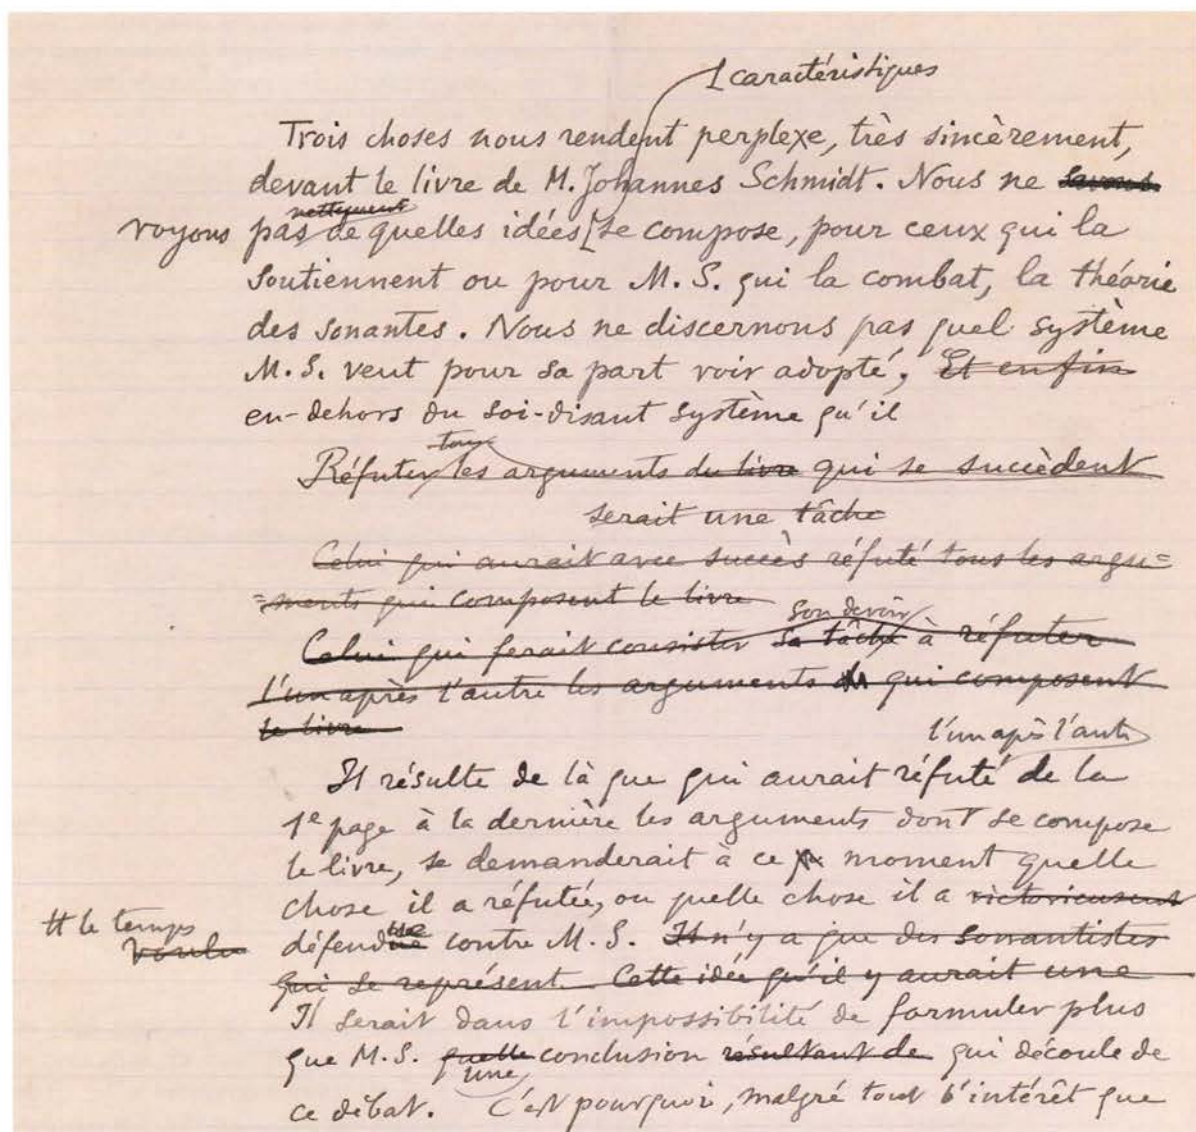 [caractéristiques
Trois choses nous rendent perplexe, très sincèrement,
devant le livre de M. Johannes Schmidt. Nous ne savons
nettement
voyons pas de quelles idées [se compose, pour ceux qui la
soutiennent ou pour M. S. qui la combat, la théorie
des sonantes. Nous ne discernons pas quel système
M. S. veut pour sa part voir adopté, Et enfin
en-dehors du soi-disant système qu'il
tous
Réfuter les arguments du livre qui se succèdent
serait une tâche
Celui qui aurait avec succès réfuté tous les argu=
=ments qui composent le livre
son devoir
Celui qui ferait consister sa tâche à réfuter
l'un après l'autre les arguments qui composent
le livre
l'un après l'autr
Il résulte de là que qui aurait réfuté de la
1e page à la dernière les arguments dont se compose
le livre, se demanderait à ce moment quelle
chose il a réfutée, ou quelle chose il a victorieusement
# le temps
voulu
défendue contre M. S. Il n'y a que des sonantistes
qui se représent. Cette idée qu'il y aurait une
Il serait dans l'impossibilité de formuler plus
que M. S. quelle conclusion résultant de qui découle de
une
ce débat. C'est pourquoi, malgré tout l'intérêt que